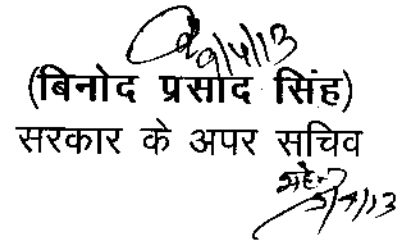 9/4/13
(बिनोद प्रसाद सिंह)
सरकार के अपर सचिव